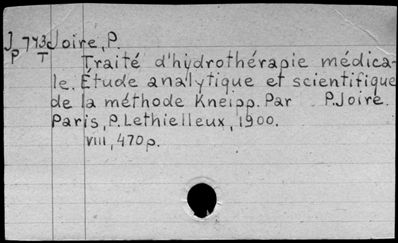 J 773 Joire, P.
P T Traité d'hydrothérapie médica-
le. Étude analytique et scientifique
de la méthode Kneipp. Par P. Joire.
Paris, P. Lethielleux, 1900.
VIII, 470 p.